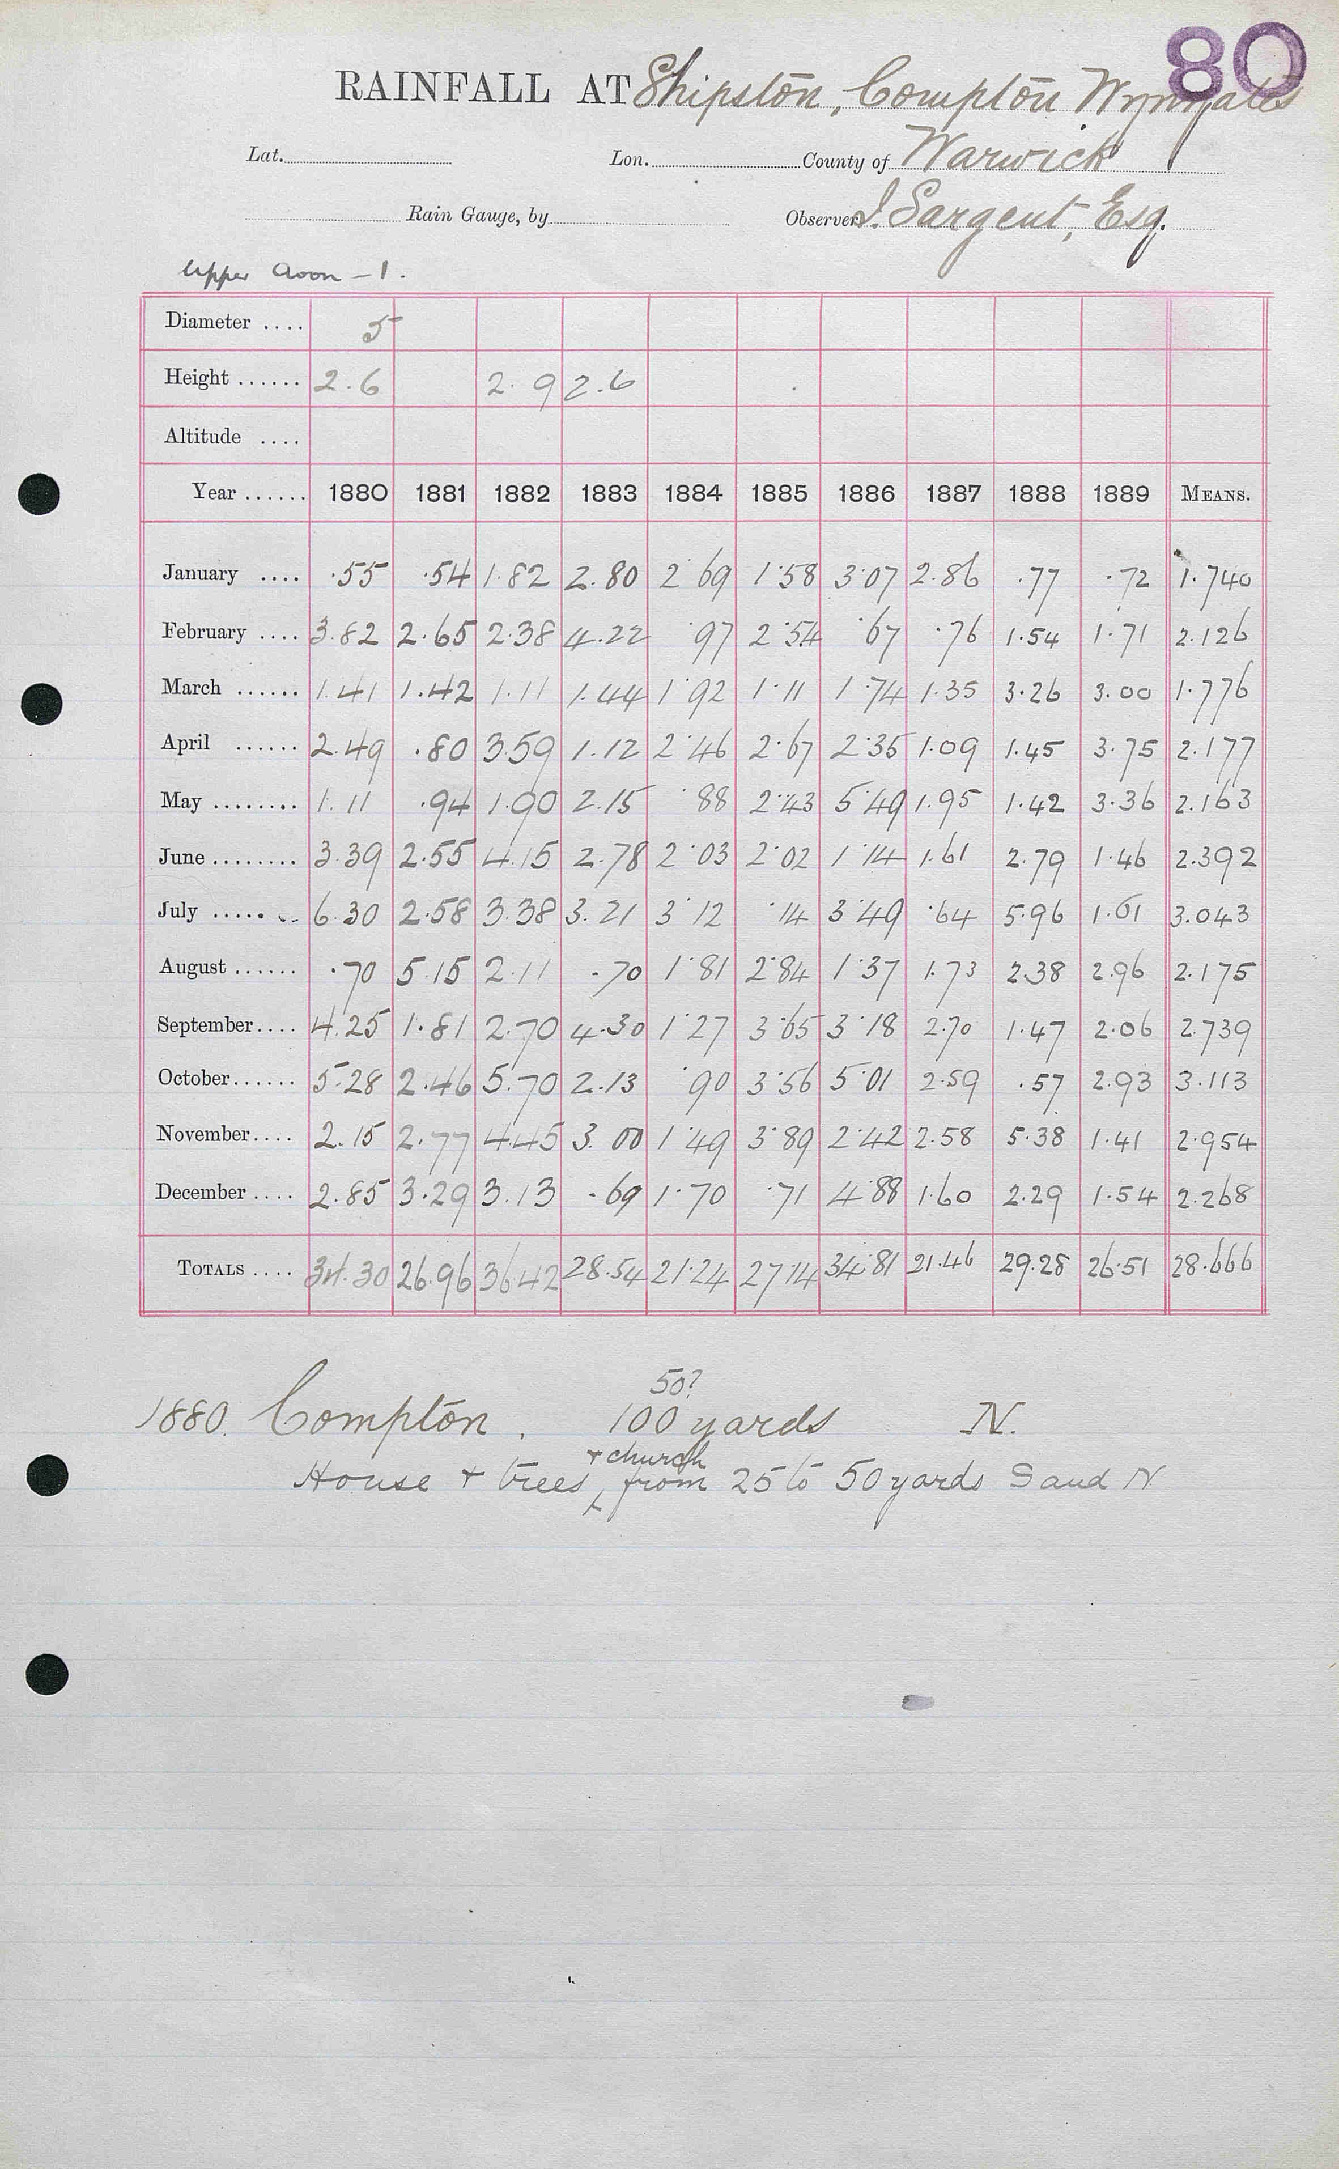 80
RAINFALL AT Shipston, Compton Wynyates
Lat. Lon. County of Warwick
Rain Gauge, by Observer J. Sargent, Esq.
Upper Avon - 1.
Diameter .... 5
Height ...... 2.6 2.9 2.6
Altitude ....
Year ...... 1880 1881 1882 1883 1884 1885 1886 1887 1888 1889 MEANS.
January .... .55 .54 1.82 2.80 2.69 1.58 3.07 2.86 .77 .72 1.740
February .... 3.82 2.65 2.38 4.22 .97 2.54 .67 .76 1.54 1.71 2.126
March ...... 1.41 1.42 1.11 1.44 1.92 1.11 1.74 1.35 3.26 3.00 1.776
April ...... 2.49 .80 3.59 1.12 2.46 2.67 2.35 1.09 1.45 3.75 2.177
May ........ 1.11 .94 1.90 2.15 .88 2.43 5.49 1.95 1.42 3.36 2.163
June ........ 3.39 2.55 4.15 2.78 2.03 2.02 1.14 1.61 2.79 1.46 2.392
July ........ 6.30 2.58 3.38 3.21 3.12 .14 3.49 .64 5.96 1.61 3.043
August ...... .70 5.15 2.11 .70 1.81 2.84 1.37 1.73 2.38 2.96 2.175
September.... 4.25 1.81 2.70 4.30 1.27 3.65 3.18 2.70 1.47 2.06 2.739
October...... 5.28 2.46 5.70 2.13 .90 3.56 5.01 2.59 .57 2.93 3.113
November.... 2.15 2.77 4.45 3.00 1.49 3.89 2.42 2.58 5.38 1.41 2.954
December .... 2.85 3.29 3.13 .69 1.70 .71 4.88 1.60 2.29 1.54 2.268
TOTALS .... 34.30 26.96 36.42 28.54 21.24 27.14 34.81 21.46 29.28 26.51 28.666
50?
1880. Compton. 100 yards N.
+ church
House + trees from 25 to 50 yards S and N